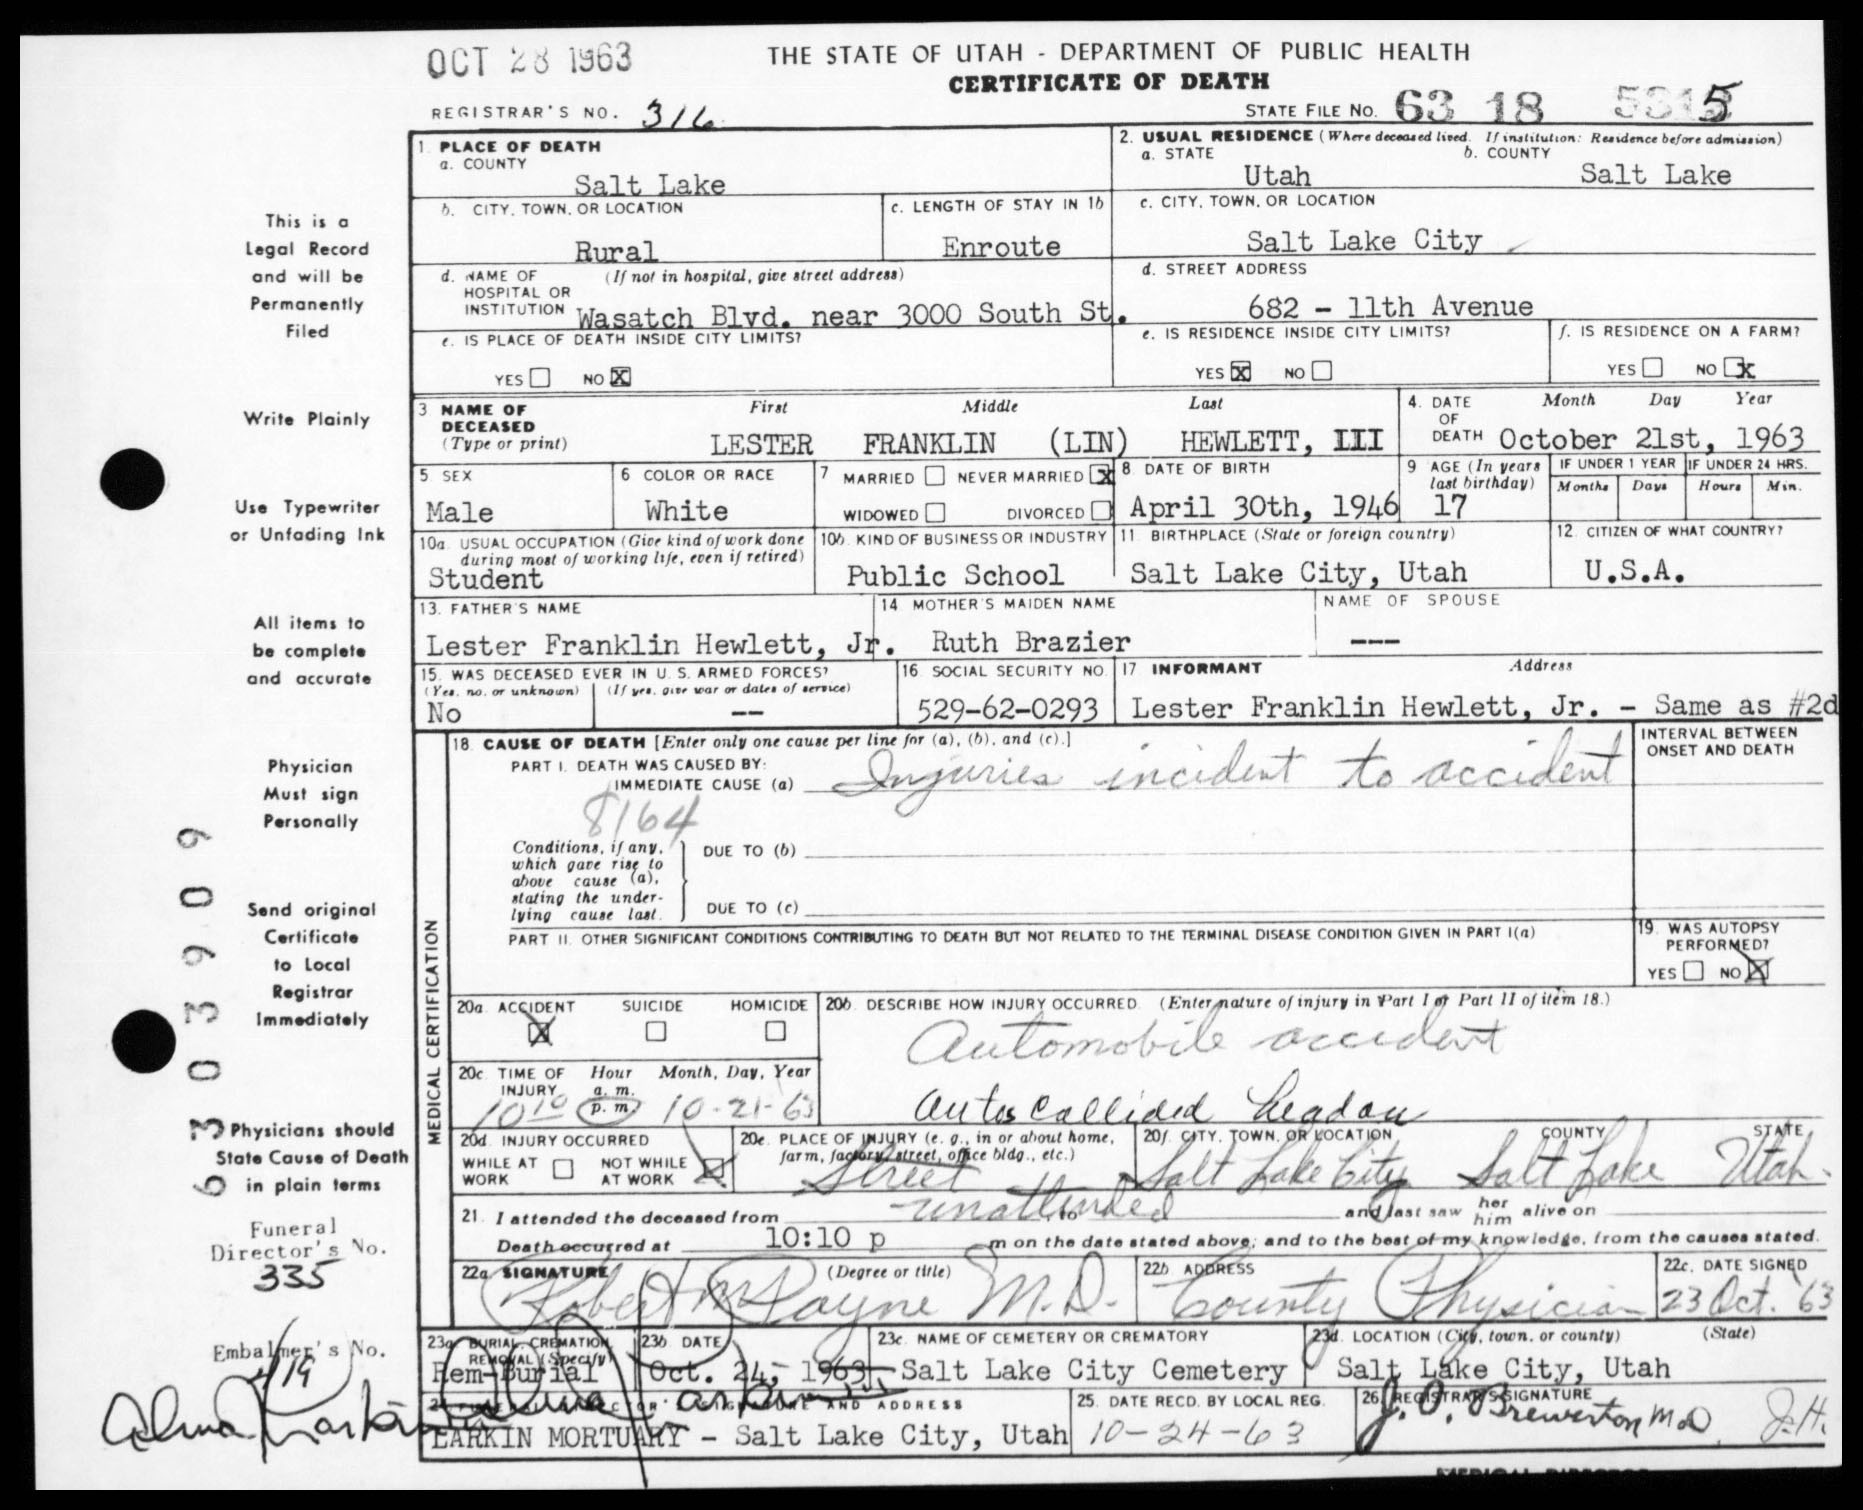 OCT 28 1963
THE STATE OF UTAH - DEPARTMENT OF PUBLIC HEALTH
CERTIFICATE OF DEATH
REGISTRAR'S NO. 316
STATE FILE NO. 63 18 5315
This is a
Legal Record
and will be
Permanently
Filed
Write Plainly
Use Typewriter
or Unfading Ink
All items to
be complete
and accurate
Physician
Must sign
Personally
Send original
Certificate
to Local
Registrar
Immediately
Physicians should
State Cause of Death
in plain terms
Funeral
Director's No.
335
Embalmer's No.
419
Alma Larkin
63 03909
1. PLACE OF DEATH
a. COUNTY
Salt Lake
b. CITY, TOWN, OR LOCATION
Rural
c. LENGTH OF STAY IN 1b
Enroute
d. NAME OF HOSPITAL OR INSTITUTION (If not in hospital, give street address)
Wasatch Blvd. near 3000 South St.
e. IS PLACE OF DEATH INSIDE CITY LIMITS?
YES NO X
2. USUAL RESIDENCE (Where deceased lived. If institution: Residence before admission)
a. STATE
Utah
b. COUNTY
Salt Lake
c. CITY, TOWN, OR LOCATION
Salt Lake City
d. STREET ADDRESS
682 - 11th Avenue
e. IS RESIDENCE INSIDE CITY LIMITS?
YES X NO
f. IS RESIDENCE ON A FARM?
YES NO X
3 NAME OF DECEASED (Type or print)
First Middle Last
LESTER FRANKLIN (LIN) HEWLETT, III
4. DATE OF DEATH Month Day Year
October 21st, 1963
5. SEX
Male
6 COLOR OR RACE
White
7 MARRIED NEVER MARRIED X
WIDOWED DIVORCED
8 DATE OF BIRTH
April 30th, 1946
9 AGE (In years last birthday)
17
IF UNDER 1 YEAR
Months Days
IF UNDER 24 HRS.
Hours Min.
10a. USUAL OCCUPATION (Give kind of work done during most of working life, even if retired)
Student
10b. KIND OF BUSINESS OR INDUSTRY
Public School
11. BIRTHPLACE (State or foreign country)
Salt Lake City, Utah
12. CITIZEN OF WHAT COUNTRY?
U.S.A.
13. FATHER'S NAME
Lester Franklin Hewlett, Jr.
14 MOTHER'S MAIDEN NAME
Ruth Brazier
NAME OF SPOUSE
---
15. WAS DECEASED EVER IN U. S. ARMED FORCES?
(Yes, no, or unknown) (If yes, give war or dates of service)
No --
16. SOCIAL SECURITY NO.
529-62-0293
17 INFORMANT Address
Lester Franklin Hewlett, Jr. - Same as #2d
MEDICAL CERTIFICATION
18. CAUSE OF DEATH [Enter only one cause per line for (a), (b), and (c).]
PART I. DEATH WAS CAUSED BY:
IMMEDIATE CAUSE (a) Injuries incident to accident
8164
INTERVAL BETWEEN
ONSET AND DEATH
Conditions, if any, which gave rise to above cause (a), stating the underlying cause last.
DUE TO (b)
DUE TO (c)
PART II. OTHER SIGNIFICANT CONDITIONS CONTRIBUTING TO DEATH BUT NOT RELATED TO THE TERMINAL DISEASE CONDITION GIVEN IN PART I(a)
19. WAS AUTOPSY PERFORMED?
YES NO X
20a. ACCIDENT X SUICIDE HOMICIDE
20b. DESCRIBE HOW INJURY OCCURRED. (Enter nature of injury in Part I or Part II of item 18.)
Automobile accident
Autos collided headon
20c. TIME OF INJURY Hour a. m. p. m. Month, Day, Year
10 10 10-21-63
20d. INJURY OCCURRED
WHILE AT WORK NOT WHILE AT WORK X
20e. PLACE OF INJURY (e. g., in or about home, farm, factory, street, office bldg., etc.)
Street
20f. CITY, TOWN, OR LOCATION COUNTY STATE
Salt Lake City Salt Lake Utah.
21. I attended the deceased from unattended, to and last saw her him alive on
Death occurred at 10:10 p m on the date stated above; and to the best of my knowledge, from the causes stated.
22a. SIGNATURE (Degree or title)
Robert M Payne M.D.
22b ADDRESS
County Physician
22c. DATE SIGNED
23 Oct. '63
23a. BURIAL, CREMATION, REMOVAL (Specify)
Rem-Burial
23b DATE
Oct. 24, 1963
23c. NAME OF CEMETERY OR CREMATORY
Salt Lake City Cemetery
23d. LOCATION (City, town, or county) (State)
Salt Lake City, Utah
24. FUNERAL DIRECTOR'S SIGNATURE AND ADDRESS
Alma Larkin
LARKIN MORTUARY - Salt Lake City, Utah
25. DATE RECD. BY LOCAL REG.
10-24-63
26. REGISTRAR'S SIGNATURE
J. O. Brewerton M.D. J.H.
MEDICAL DIRECTOR